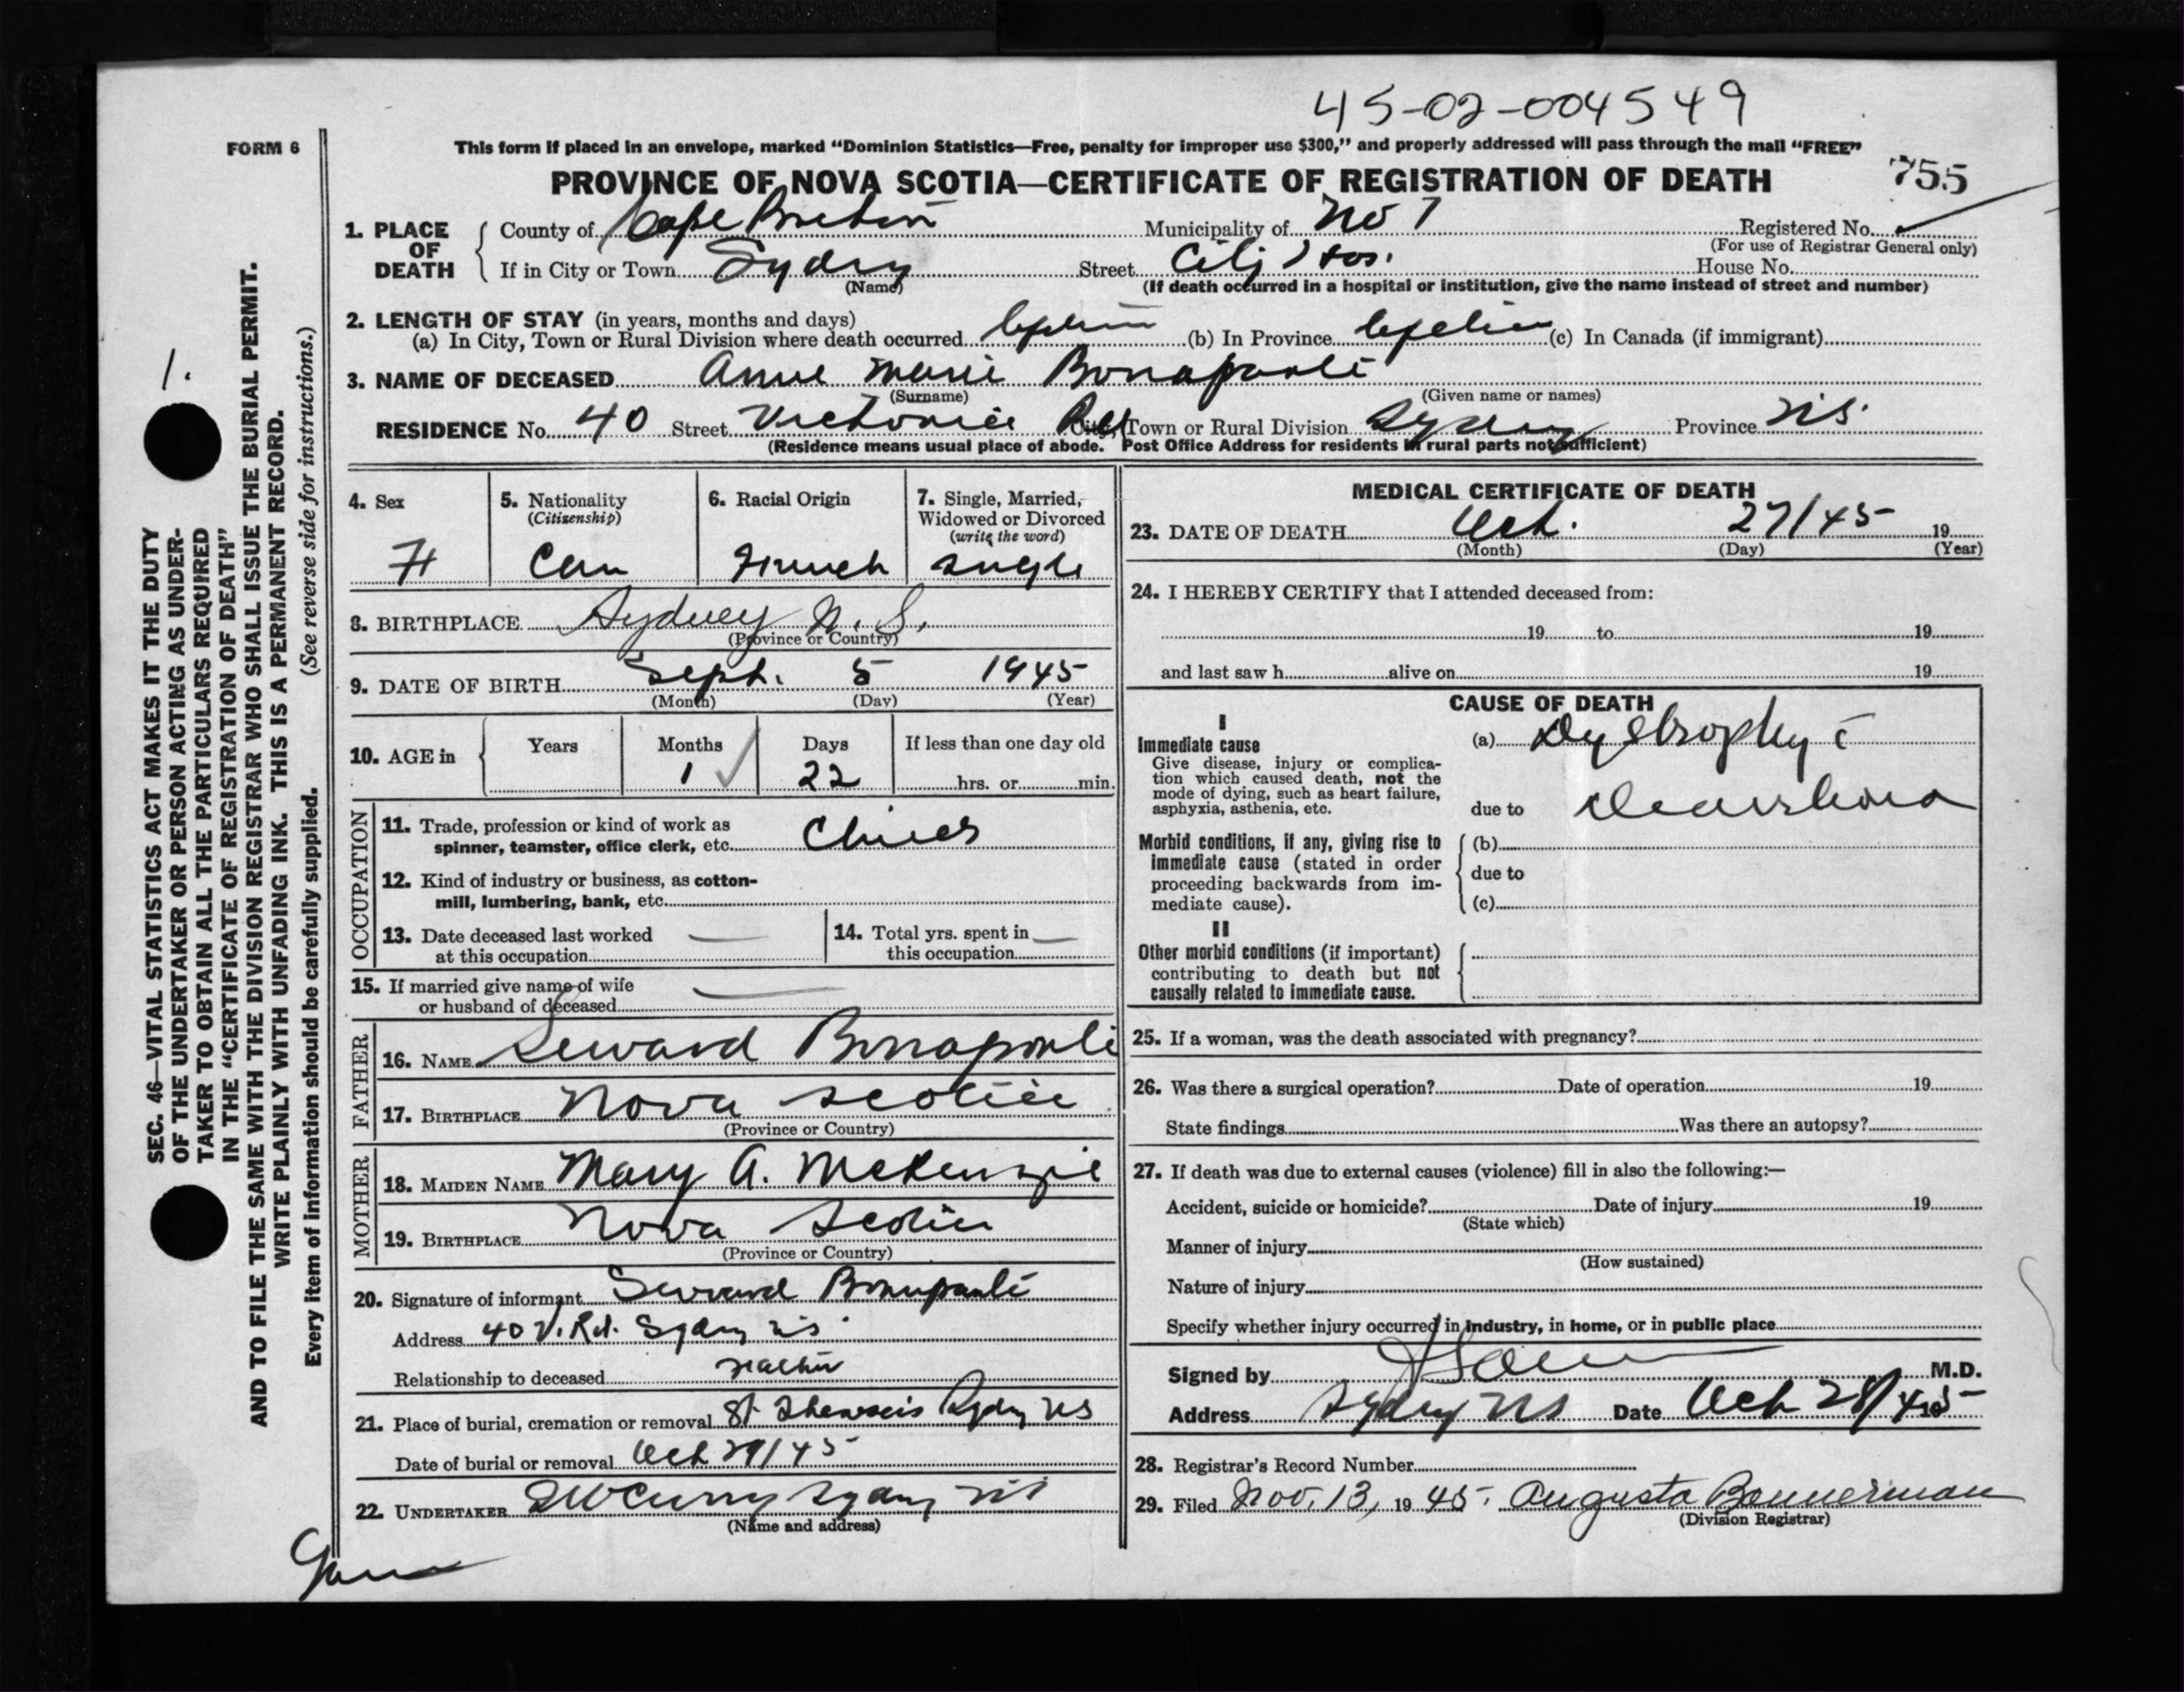 45-02-004549
FORM 6
This form if placed in an envelope, marked “Dominion Statistics—Free, penalty for improper use $300,” and properly addressed will pass through the mail “FREE”
PROVINCE OF NOVA SCOTIA—CERTIFICATE OF REGISTRATION OF DEATH 755
1. PLACE OF DEATH
County of Cape Breton Municipality of No 7 Registered No.
(For use of Registrar General only)
If in City or Town Sydney Street City Hos. House No.
(Name) (If death occurred in a hospital or institution, give the name instead of street and number)
2. LENGTH OF STAY (in years, months and days)
(a) In City, Town or Rural Division where death occurred (b) In Province (c) In Canada (if immigrant)
3. NAME OF DECEASED Anne Marie Bonaparte
(Surname) (Given name or names)
RESIDENCE No. 40 Street Victoria Rd City, Town or Rural Division Sydney Province N.S.
(Residence means usual place of abode. Post Office Address for residents in rural parts not sufficient)
4. Sex 5. Nationality 6. Racial Origin 7. Single, Married,
(Citizenship) Widowed or Divorced
(write the word)
F Can French Single
8. BIRTHPLACE Sydney N. S.
(Province or Country)
9. DATE OF BIRTH Sept. 5 1945
(Month) (Day) (Year)
10. AGE in Years Months Days If less than one day old
1 22 hrs. or min.
OCCUPATION
11. Trade, profession or kind of work as
spinner, teamster, office clerk, etc.
12. Kind of industry or business, as cotton-
mill, lumbering, bank, etc.
13. Date deceased last worked
at this occupation
14. Total yrs. spent in
this occupation
15. If married give name of wife
or husband of deceased
FATHER
16. NAME Seward Bonaparte
17. BIRTHPLACE Nova Scotia
(Province or Country)
MOTHER
18. MAIDEN NAME Mary A. McKenzie
19. BIRTHPLACE Nova Scotia
(Province or Country)
20. Signature of informant Seward Bonaparte
Address 40 V. Rd. Sydney N.S.
Relationship to deceased Father
21. Place of burial, cremation or removal St Sydney N S
Date of burial or removal Oct 29/45
22. UNDERTAKER Curry Sydney N S
(Name and address)
MEDICAL CERTIFICATE OF DEATH
23. DATE OF DEATH Oct. 27/45 19
(Month) (Day) (Year)
24. I HEREBY CERTIFY that I attended deceased from:
19 to 19
and last saw h alive on 19
CAUSE OF DEATH
I
Immediate cause
Give disease, injury or complica-
tion which caused death, not the
mode of dying, such as heart failure,
asphyxia, asthenia, etc.
(a) Dystrophy c̄
due to Diarrhoea
Morbid conditions, if any, giving rise to
immediate cause (stated in order
proceeding backwards from im-
mediate cause).
(b)
due to
(c)
II
Other morbid conditions (if important)
contributing to death but not
causally related to immediate cause.
25. If a woman, was the death associated with pregnancy?
26. Was there a surgical operation? Date of operation 19
State findings Was there an autopsy?
27. If death was due to external causes (violence) fill in also the following:—
Accident, suicide or homicide? Date of injury 19
(State which)
Manner of injury
(How sustained)
Nature of injury
Specify whether injury occurred in industry, in home, or in public place
Signed by M.D.
Address Sydney N S Date Oct 28/45
28. Registrar's Record Number
29. Filed Nov. 13, 19 45. Augusta Bannerman
(Division Registrar)
1.
SEC. 46—VITAL STATISTICS ACT MAKES IT THE DUTY
OF THE UNDERTAKER OR PERSON ACTING AS UNDER-
TAKER TO OBTAIN ALL THE PARTICULARS REQUIRED
IN THE “CERTIFICATE OF REGISTRATION OF DEATH”
AND TO FILE THE SAME WITH THE DIVISION REGISTRAR WHO SHALL ISSUE THE BURIAL PERMIT.
WRITE PLAINLY WITH UNFADING INK. THIS IS A PERMANENT RECORD.
Every item of information should be carefully supplied. (See reverse side for instructions.)